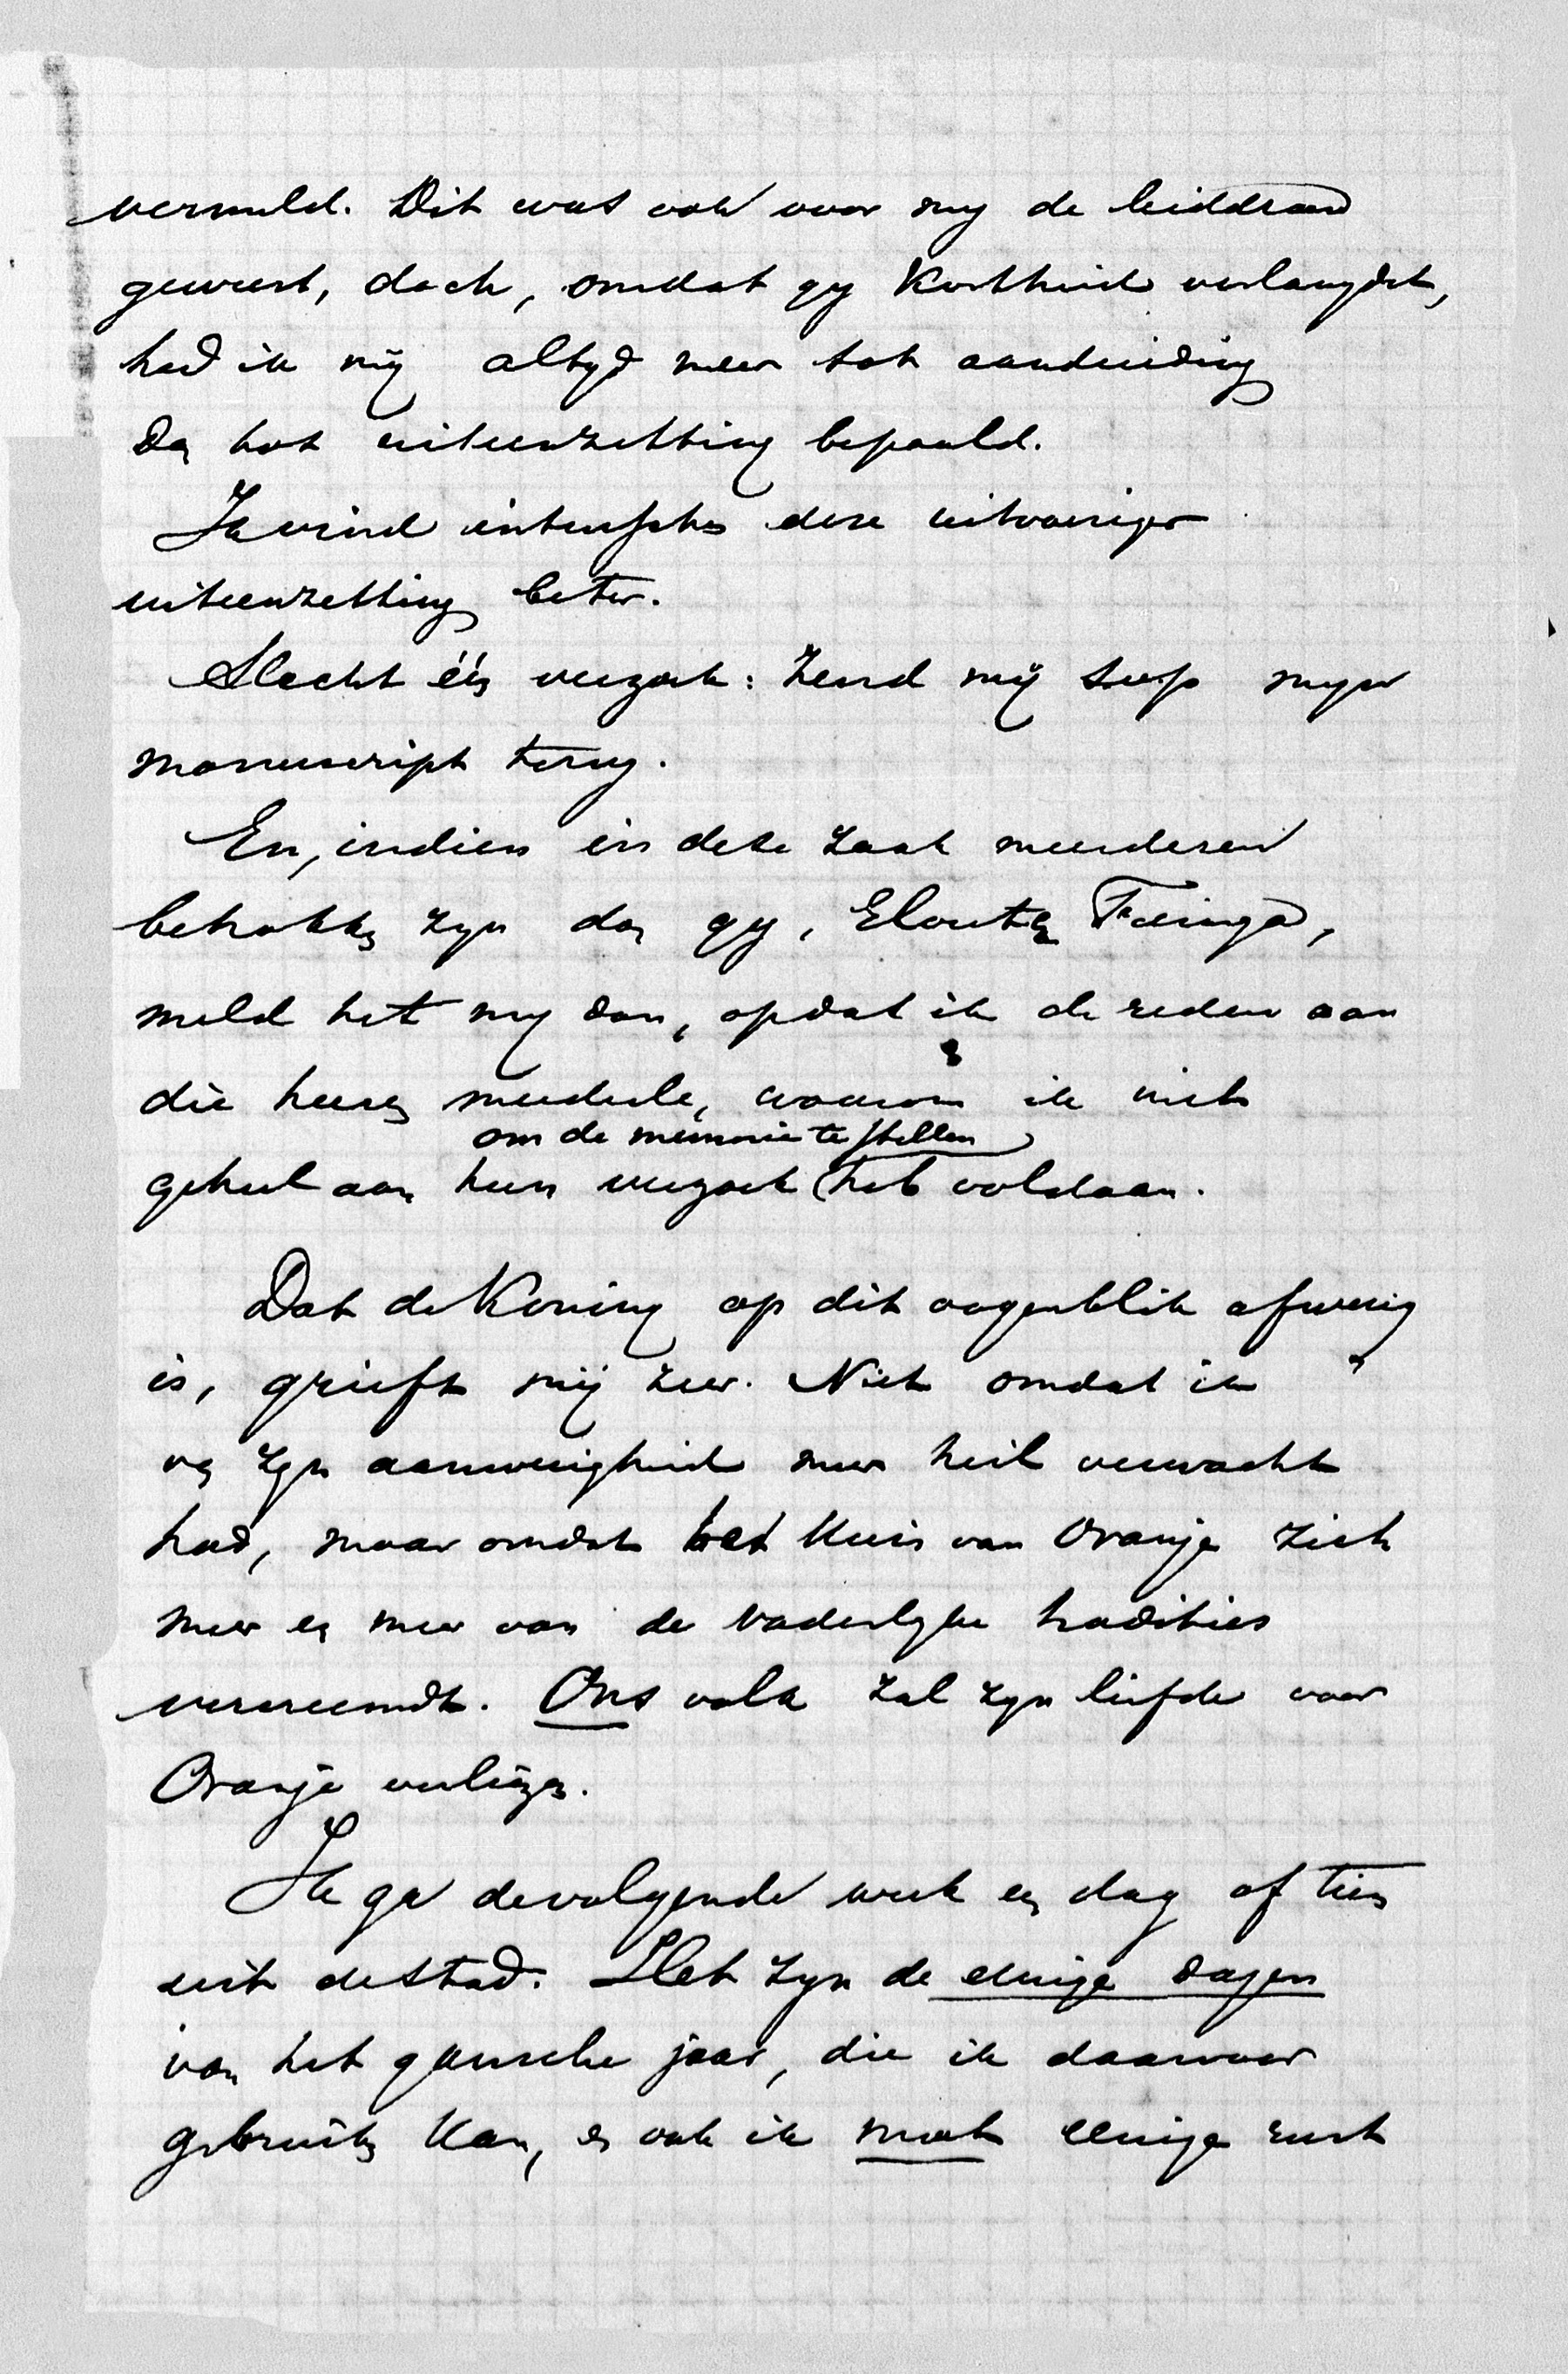 vermeld. Dit was ook voor my de leiddraad
geweest, doch, omdat gy kortheid verlangdet,
had ik mij altyd meer tot aanduiding
dan tot uiteenzetting bepaald.
Ik vind intusschen deze uitvoeriger
uiteenzetting beter.
Slecht één verzoek: Zend mij s.v.p. myn
manuscript terug.
En, indien in deze zaak meerderen
betrokken zyn dan gy, Elout en Feringa,
meld het my dan, opdat ik de reden aan
die heeren meedeele, waarom ik niet
om de memorie te stellen
geheel aan hun verzoek (heb voldaan.
Dat de Koning op dit oogenblik afwezig
is, grieft mij zeer. Niet omdat ik
van zyn aanwezigheid meer heil verwacht
had, maar omdat het Huis van Oranje zich
meer en meer van de vaderlyke tradities
vervreemdt. Ons volk zal zyn liefde voor
Oranje verliezen.
Ik ga de volgende week een dag of tien
uit de stad. Het zyn de eenige dagen
van het gansche jaar, die ik daarvoor
gebruiken kan, en ook ik moet eenige rust